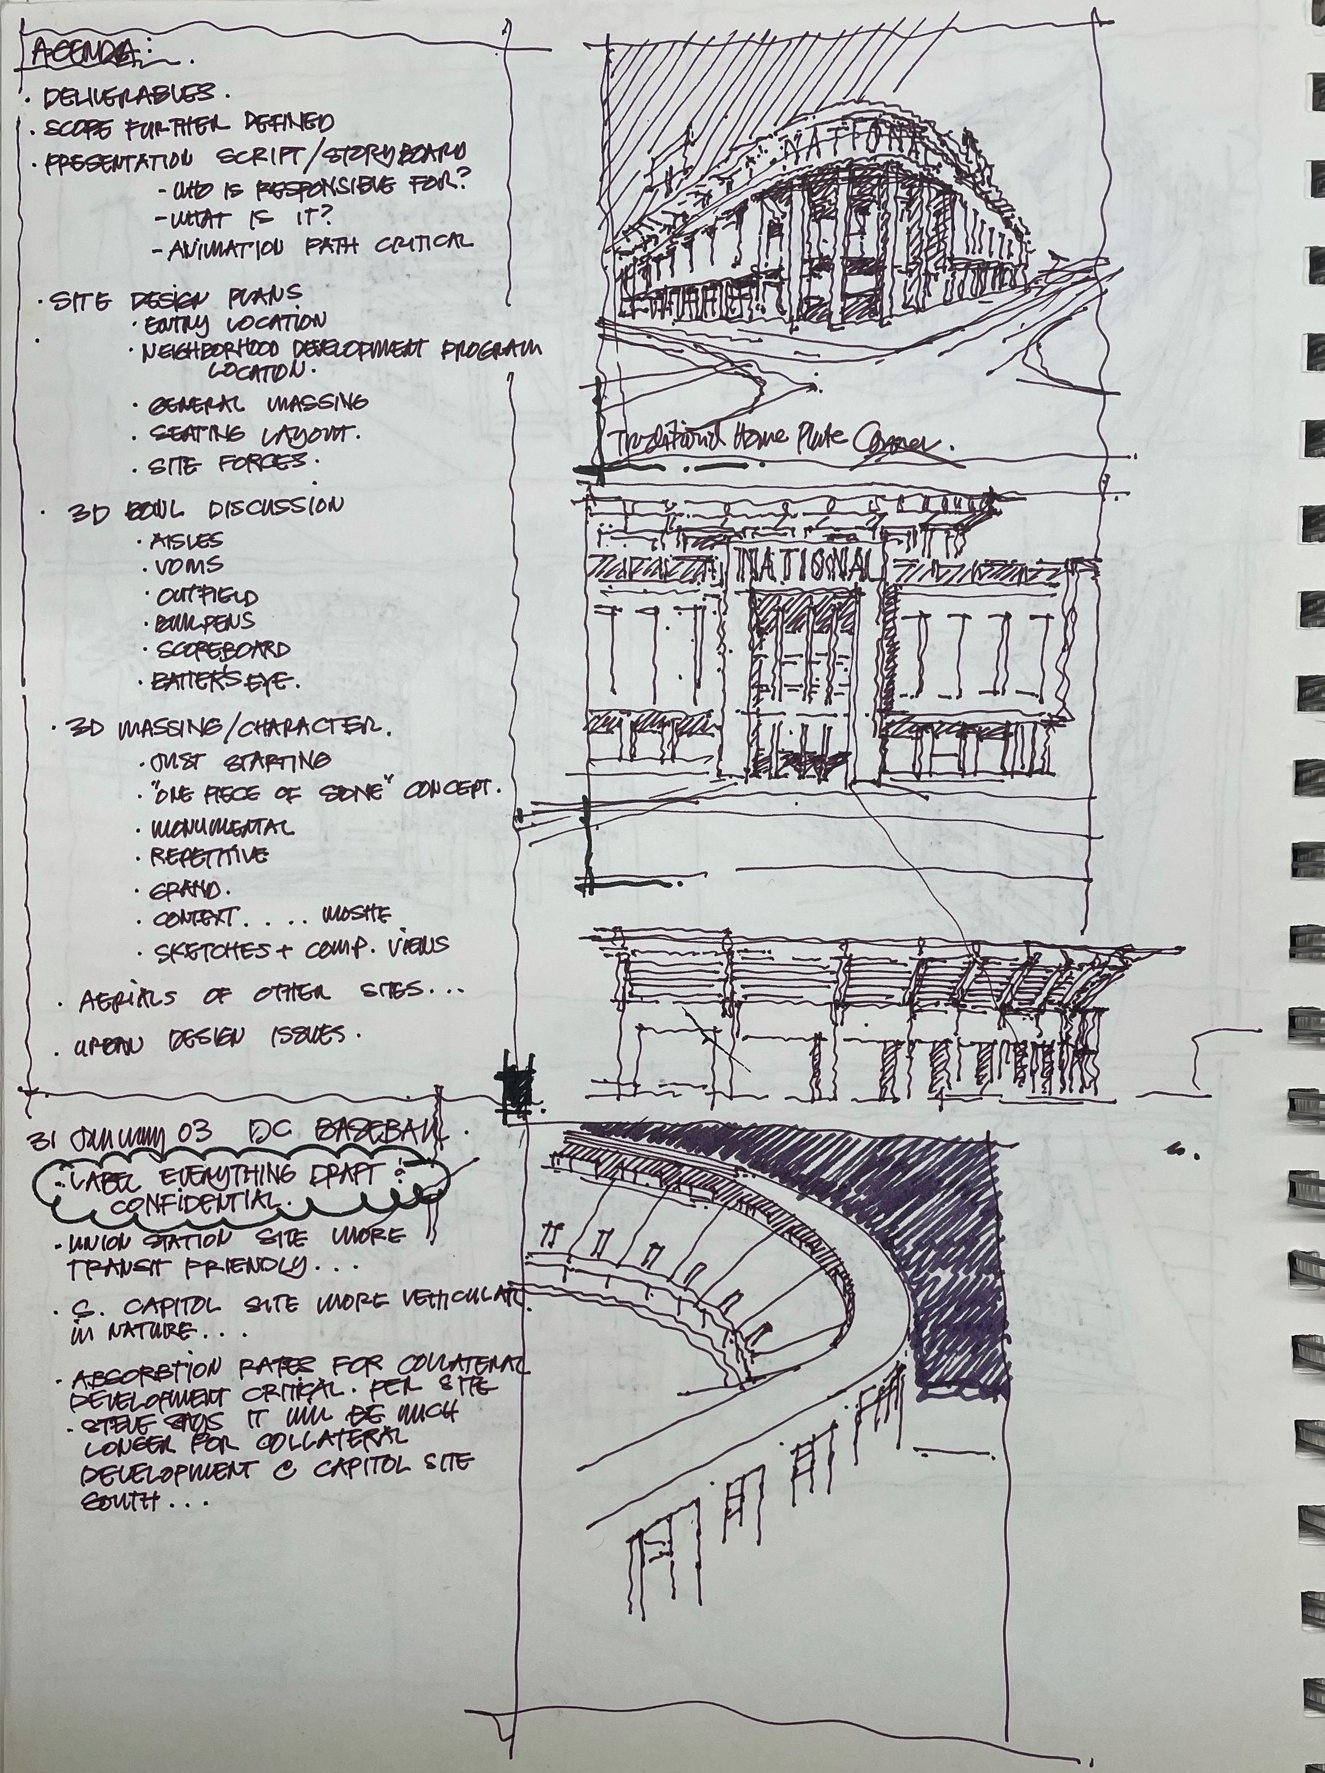 AGENDA:
· DELIVERABLES.
· SCOPE FURTHER DEFINED
· PRESENTATION SCRIPT/STORYBOARD
- WHO IS RESPONSIBLE FOR?
- WHAT IS IT?
- ANIMATION PATH CRITICAL
· SITE DESIGN PLANS
· ENTRY LOCATION
· NEIGHBORHOOD DEVELOPMENT PROGRAM
LOCATION.
· GENERAL MASSING
· SEATING LAYOUT.
· SITE FORCES.
· 3D BOWL DISCUSSION
· AISLES
· VOMS
· OUTFIELD
· BULLPENS
· SCOREBOARD
· BATTER'S EYE.
· 3D MASSING/CHARACTER.
· JUST STARTING
· "ONE PIECE OF STONE" CONCEPT.
· MONUMENTAL
· REPETITIVE
· GRAND.
· CONTEXT.... MOSHE
· SKETCHES + COMP. VIEWS
· AERIALS OF OTHER SITES...
· URBAN DESIGN ISSUES.
31 January 03 DC BASEBALL.
· LABEL EVERYTHING DRAFT &
CONFIDENTIAL.
· UNION STATION SITE MORE
TRANSIT FRIENDLY...
· S. CAPITOL SITE MORE VEHICULAR
IN NATURE...
· ABSORBTION RATES FOR COLLATERAL
DEVELOPMENT CRITICAL. PER SITE
· STEVE SAYS IT WILL BE MUCH
LONGER FOR COLLATERAL
DEVELOPMENT @ CAPITOL SITE
SOUTH...
NATIONAL
Traditional Home Plate Corner.
NATIONAL